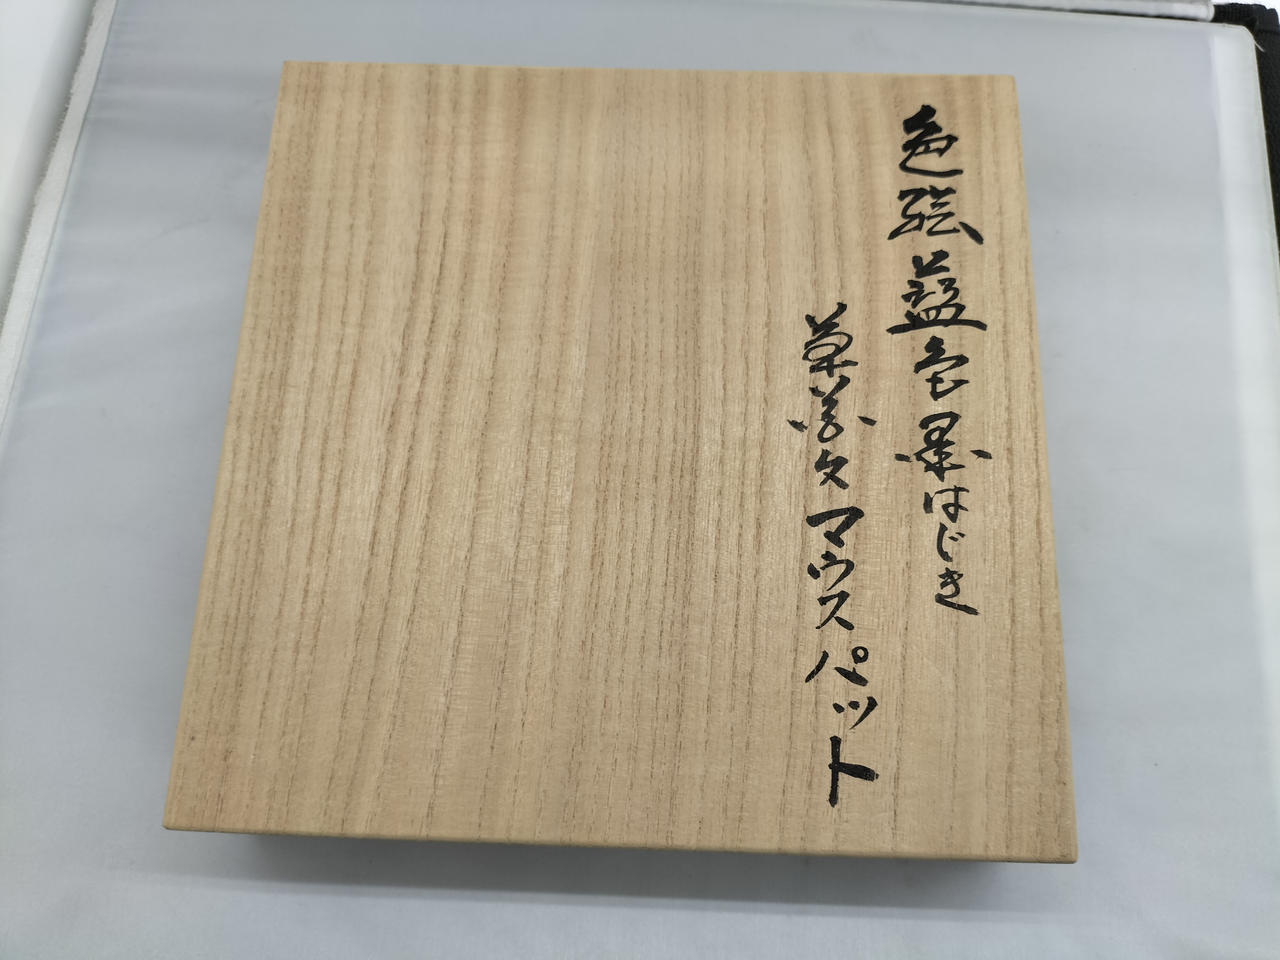 色絵藍色墨はじき
文マウスパット